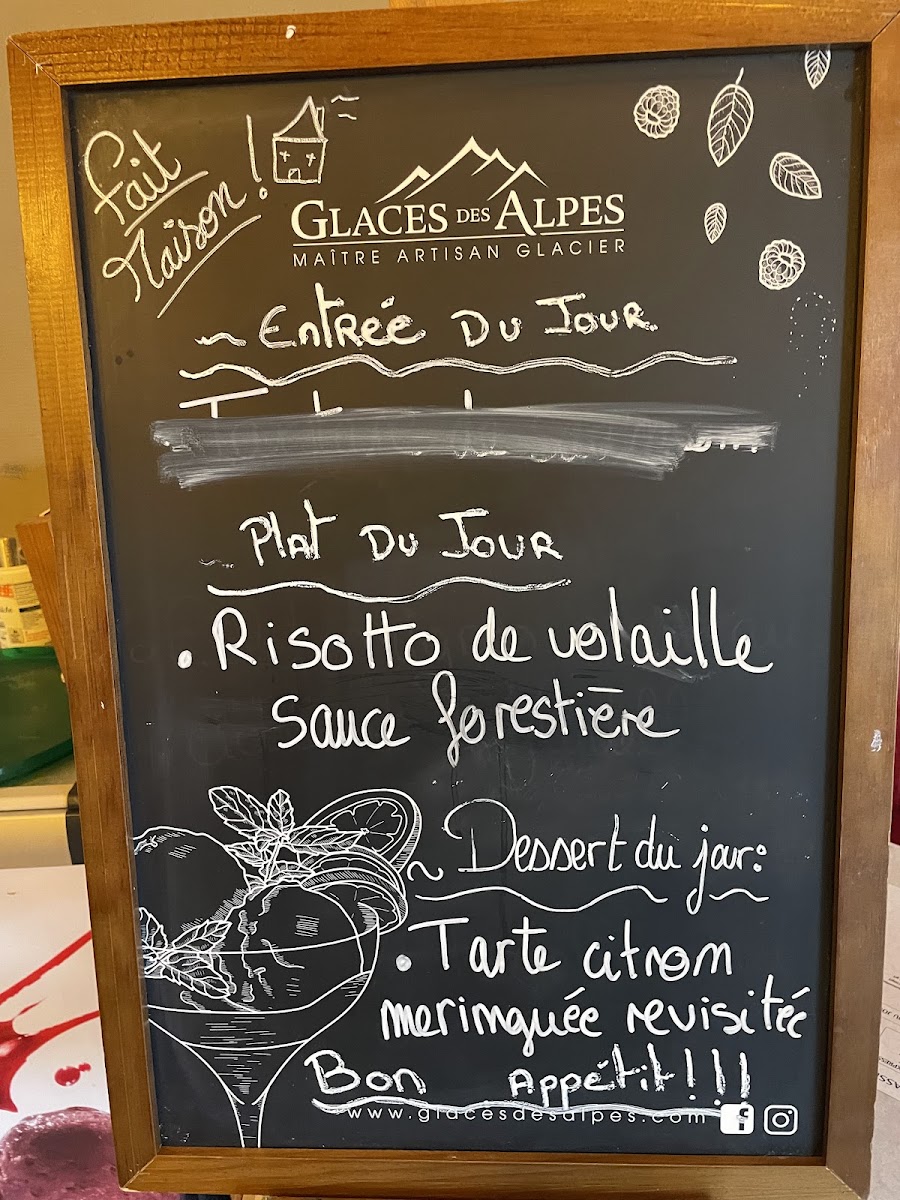 Fait
Maison!
GLACES DES ALPES
MAÎTRE ARTISAN GLACIER
~ Entrée Du Jour
Plat Du Jour
. Risotto de volaille
sauce forestière
~ Dessert du jour:
. Tarte citron
meringuée revisitée
Bon Appétit!!!
www.glacesdesalpes.com